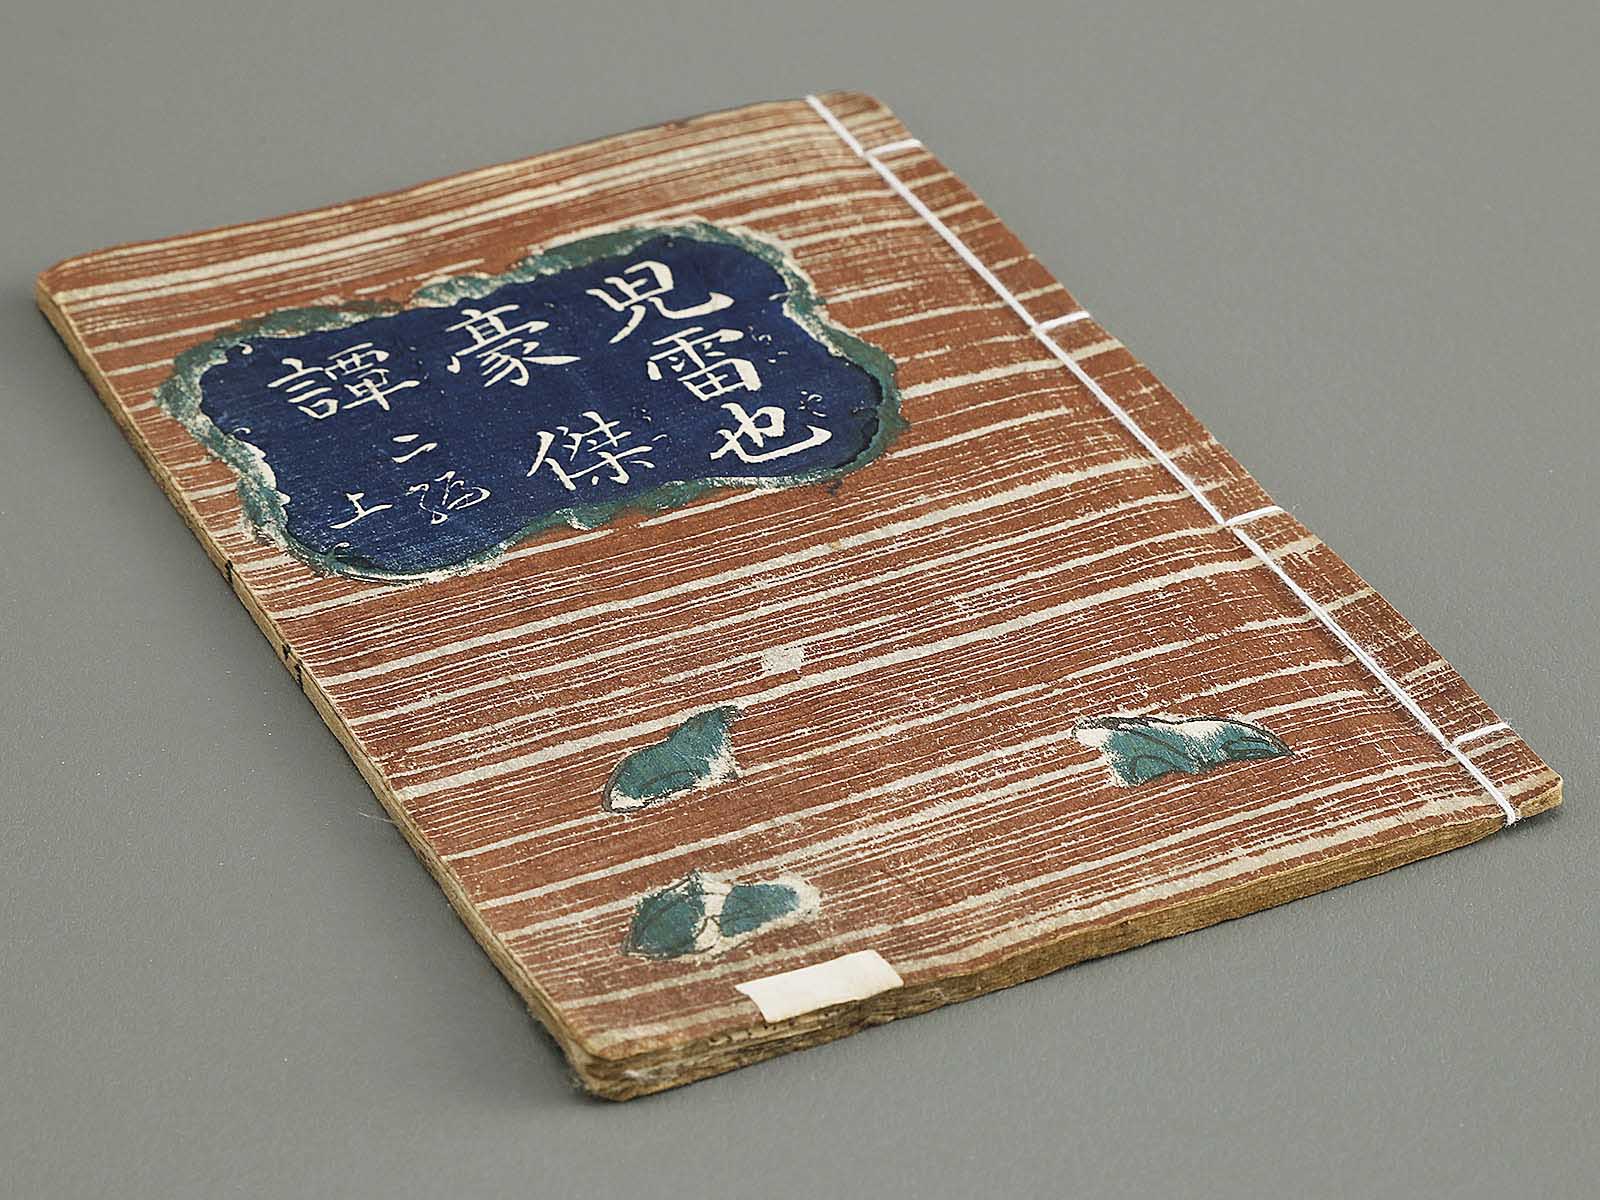 児雷也
豪傑
譚 二編
上